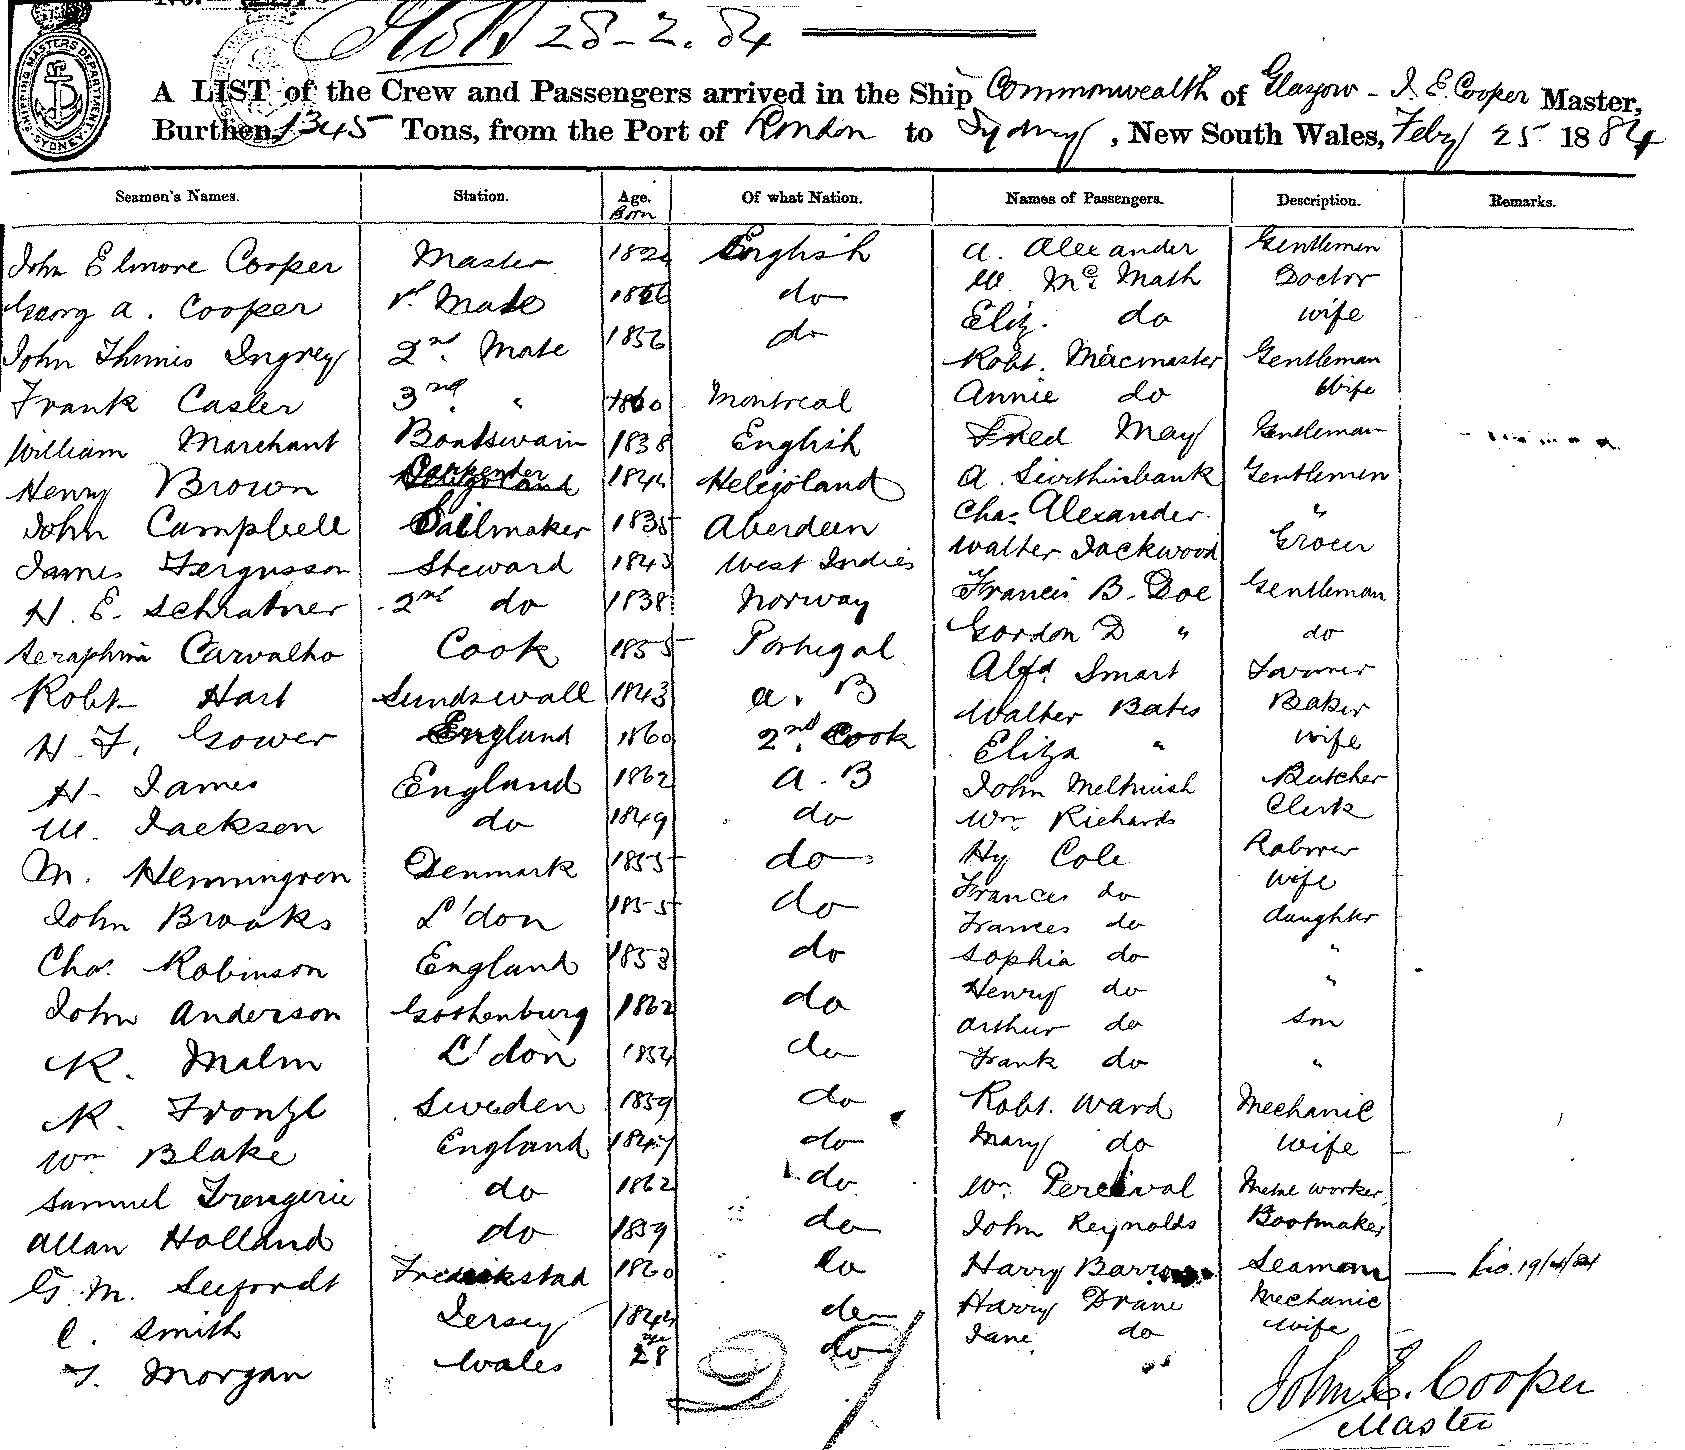 28-2.84
SHIPPING MASTERS DEPARTMENT SYDNEY
A LIST of the Crew and Passengers arrived in the Ship Commonwealth of Glasgow - J. E. Cooper Master,
Burthen, 1345 Tons, from the Port of London to Sydney, New South Wales, Feby 25 1884
Seamen's Names. Station. Age. Born Of what Nation. Names of Passengers. Description. Remarks.
John Elmore Cooper Master English A. Alexander Gentlemen
Georg A. Cooper 1st Mate do W. Mc Math Doctor
Eliz. do wife
John Ingrey 2nd Mate 1856 do Robt. Macmaster Gentleman
Frank Casler 3rd " 1860 Montreal Annie do Wife
William Marchant Boatswain 1838 English Fred May Gentleman
Henry Brown Carpenter 1844 Heligoland A. Gentlemen
John Campbell Sailmaker 1835 Aberdeen Chas Alexander "
James Fergusson Steward 1843 West Indies Walter Grocer
H. E. 2nd do 1838 Norway Francis B. Doe Gentleman
Seraphim Carvalho Cook 1855 Portugal Gordon D " do
Robt Hart Sundswall 1843 A. B Alfd Smart
H. F. Gower England 1860 2nd Cook Walter Bates Baker
Eliza " wife
H. James England 1862 A. B John Butcher
W. Jackson do 1849 do Wm Richards Clerk
M. Denmark 1855 do Hy Cole
Frances do wife
John Brooks L'don 1855 do Frances do daughter
Chas. Robinson England 1853 do Sophia do "
John Anderson Gothenburg 1862 do Henry do "
Arthur do son
R. Malm L'don 1854 do Frank do "
R. Sweden 1859 do Robt. Ward Mechanic
Wm Blake England 1847 do Mary do wife
Samuel do 1862 do Wm. Percival Metal worker
Allan Holland do 1859 do John Reynolds Bootmaker
G. M. Fredrikstad 1860 do Harry Seaman
C. Smith Jersey 1844 do Harry Drane Mechanic
T. Morgan Wales 28 do Jane do wife
John E. Cooper
Master